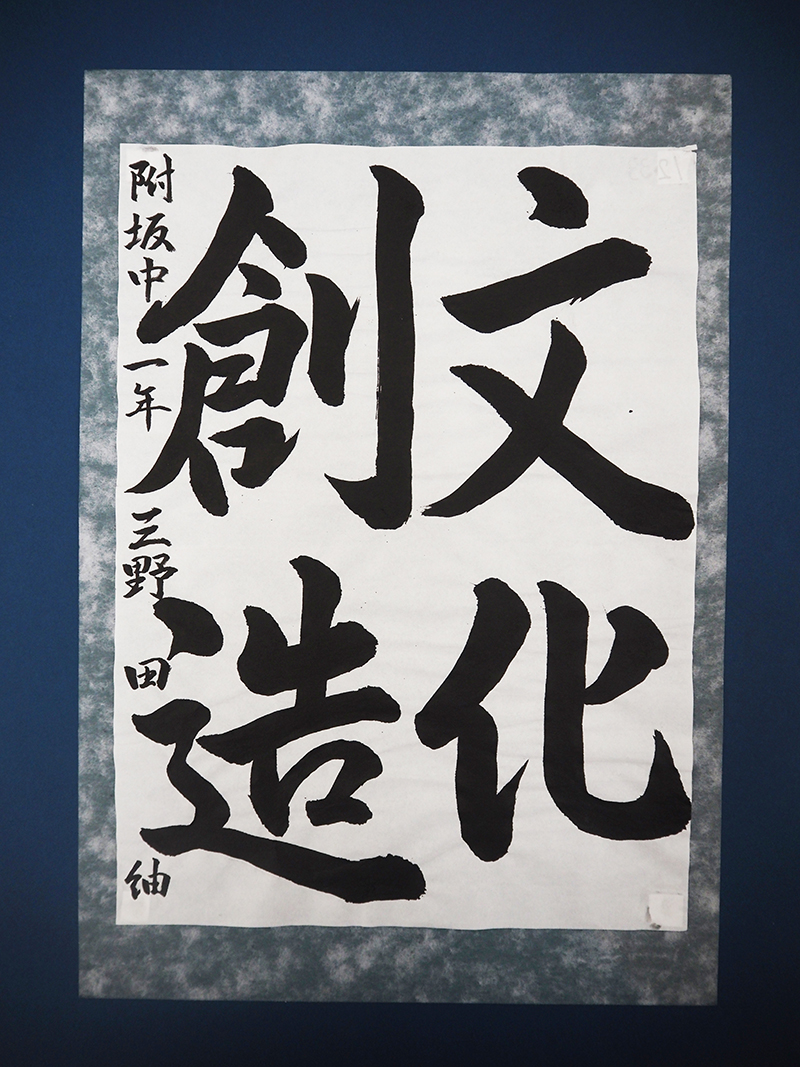 文化
創造
附坂中一年 三野田 紬